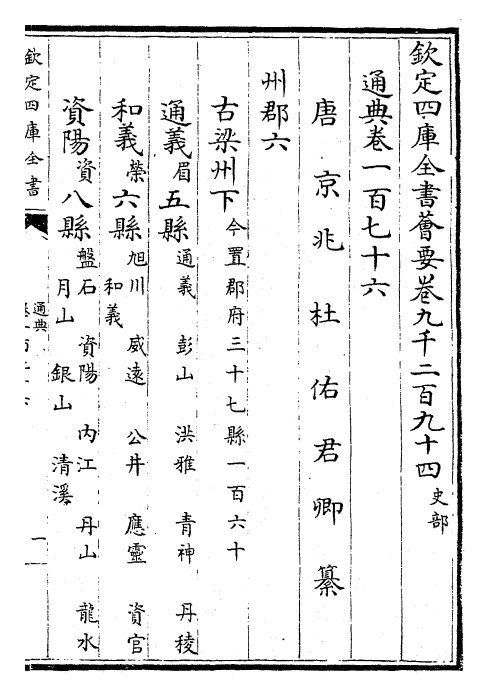 欽定四庫全書薈要卷九千二百九十四 史部
通典卷一百七十六
唐京兆杜佑君卿纂
州郡六
古梁州下 今置郡府三十七縣一百六十
通義 眉 五縣 通義 彭山 洪雅 青神 丹稜
和義 榮 六縣 旭川 威遠 公井 應靈 資官
和義
資陽 資 八縣 盤石 資陽 內江 丹山 龍水
月山 銀山 清溪
欽定四庫全書
通典
一